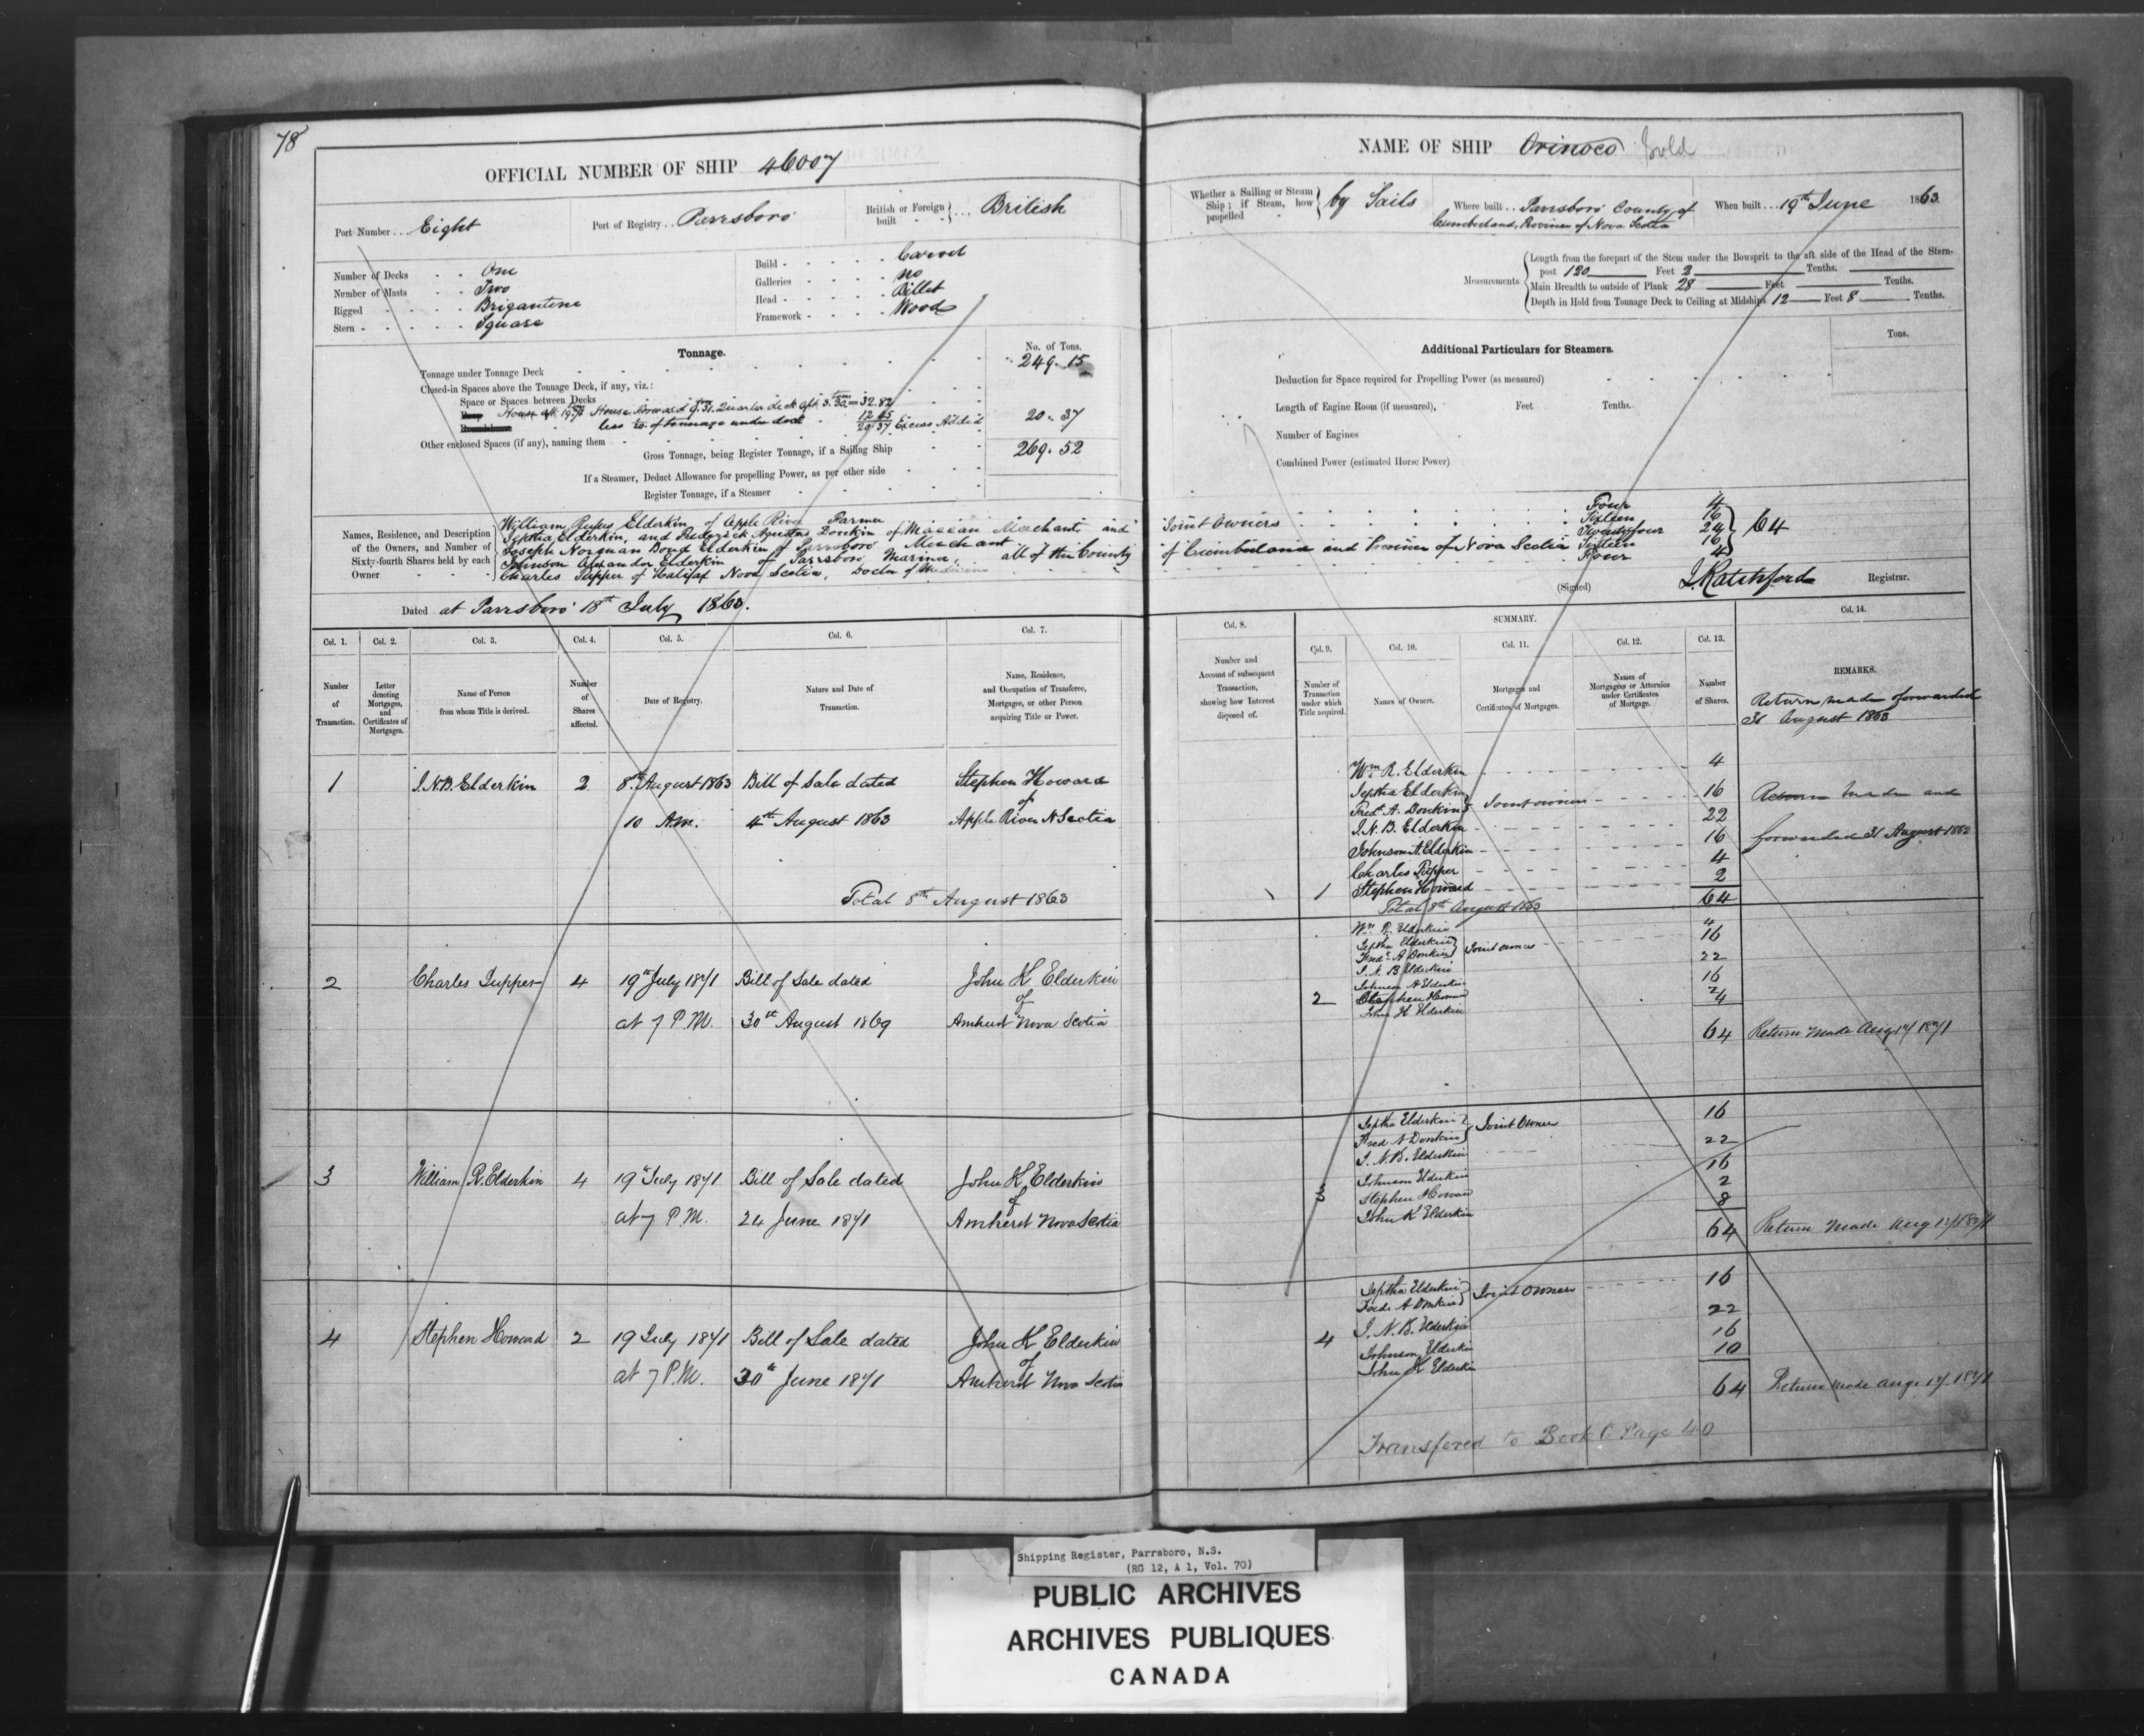 78
OFFICIAL NUMBER OF SHIP 46007
Port Number . . . Eight
Port of Registry . . Parrsboro
British or Foreign built - - } . . . British
Number of Decks - - One
Number of Masts - - Two
Rigged - - - - - Brigantine
Stern - - - - - - Square
Build - - - - - - Carvel
Galleries - - - - no
Head - - - - - Billet
Framework - - - - Wood
Tonnage.
No. of Tons.
Tonnage under Tonnage Deck 249. 15
Closed-in Spaces above the Tonnage Deck, if any, viz.:
Space or Spaces between Decks
House Forward 9.31. Quarter deck aft 3.30 = 32.82
less of tonnage under deck 12 45
20.37 Excess Added 20. 37
Other enclosed Spaces (if any), naming them
Gross Tonnage, being Register Tonnage, if a Sailing Ship 269. 52
If a Steamer, Deduct Allowance for propelling Power, as per other side
Register Tonnage, if a Steamer
Names, Residence, and Description of the Owners, and Number of Sixty-fourth Shares held by each Owner
William Rufus Elderkin of Apple River Farmer
Jeptha Elderkin, and Frederick Agustus Donkin of Maccan Merchants and
Joseph Norman Bond Elderkin of Parrsboro Merchant
Johnson Alexander Elderkin of Parrsboro Mariner, all of the County
Charles Tupper of Halifax Nova Scotia, Doctor of Medicine
Dated at Parrsboro 18th July 1863.
Col. 1. Col. 2. Col. 3. Col. 4. Col. 5. Col. 6. Col. 7.
Number of Transaction.
Letter denoting Mortgages, and Certificates of Mortgages.
Name of Person from whom Title is derived.
Number of Shares affected.
Date of Registry.
Nature and Date of Transaction.
Name, Residence, and Occupation of Transferee, Mortgagee, or other Person acquiring Title or Power.
1 J.N.B. Elderkin 2 8th August 1863 Bill of Sale dated Stephen Howard
of
10 A.M. 4th August 1863 Apple River N Scotia
Total 8th August 1863
2 Charles Tupper 4 19th July 1871 Bill of Sale dated John K Elderkin
of
at 7 P.M. 30th August 1869 Amherst Nova Scotia
3 William R. Elderkin 4 19th July 1871 Bill of Sale dated John K Elderkin
of
at 7 P.M. 24 June 1871 Amherst Nova Scotia
4 Stephen Howard 2 19 July 1871 Bill of Sale dated John K Elderkin
of
at 7 P.M. 30th June 1871 Amherst Nova Scotia
NAME OF SHIP Orinoco
Whether a Sailing or Steam Ship; if Steam, how propelled } by Sails
Where built . . Parrsboro County of
Cumberland, Province of Nova Scotia
When built . . . 19th June 1863
Measurements
Length from the forepart of the Stem under the Bowsprit to the aft side of the Head of the Stern-
post 120 Feet 2 Tenths.
Main Breadth to outside of Plank 28 Feet Tenths.
Depth in Hold from Tonnage Deck to Ceiling at Midships 12 Feet 8 Tenths.
Additional Particulars for Steamers.
Tons.
Deduction for Space required for Propelling Power (as measured)
Length of Engine Room (if measured), Feet Tenths.
Number of Engines
Combined Power (estimated Horse Power)
Four 4
Joint Owners Sixteen 16
Twentyfour 24 } 64
of Cumberland and Province of Nova Scotia Sixteen 16
Four 4
(Signed) J. Ratchford Registrar.
SUMMARY.
Col. 8. Col. 9. Col. 10. Col. 11. Col. 12. Col. 13. Col. 14.
Number and Account of subsequent Transaction, showing how Interest disposed of.
Number of Transaction under which Title acquired.
Names of Owners.
Mortgages and Certificates of Mortgages.
Names of Mortgagees or Attornies under Certificates of Mortgage.
Number of Shares.
REMARKS.
Return made forwarded
31 August 1863
Wm R. Elderkin 4
Jeptha Elderkin
Fredk A. Donkin } Joint owners 16
J. N. B. Elderkin 22
Johnson A. Elderkin 16
Charles Tupper 4
1 Stephen Howard 2
64
Return made and
forwarded 31 August 1863
Total 8th August 1863
Wm R. Elderkin 4
Jeptha Elderkin
Fred A Donkin } Joint owners 16
J. N. B Elderkin 22
Johnson A Elderkin 16
Stephen Howard 2
2 John K Elderkin 4
64 Return made Aug 17/1871
Jeptha Elderkin
Fred A Donkin } Joint Owners 16
J. N. B. Elderkin 22
Johnson Elderkin 16
Stephen Howard 2
3 John K Elderkin 8
64 Return made Aug 17/1871
Jeptha Elderkin
Fred A Donkin } Joint Owners 16
J. N. B. Elderkin 22
Johnson Elderkin 16
4 John K Elderkin 10
64 Return made Aug 17. 1871
Transfered to Book C Page 40
Shipping Register, Parrsboro, N.S.
(RG 12, A 1, Vol. 70)
PUBLIC ARCHIVES
ARCHIVES PUBLIQUES
CANADA